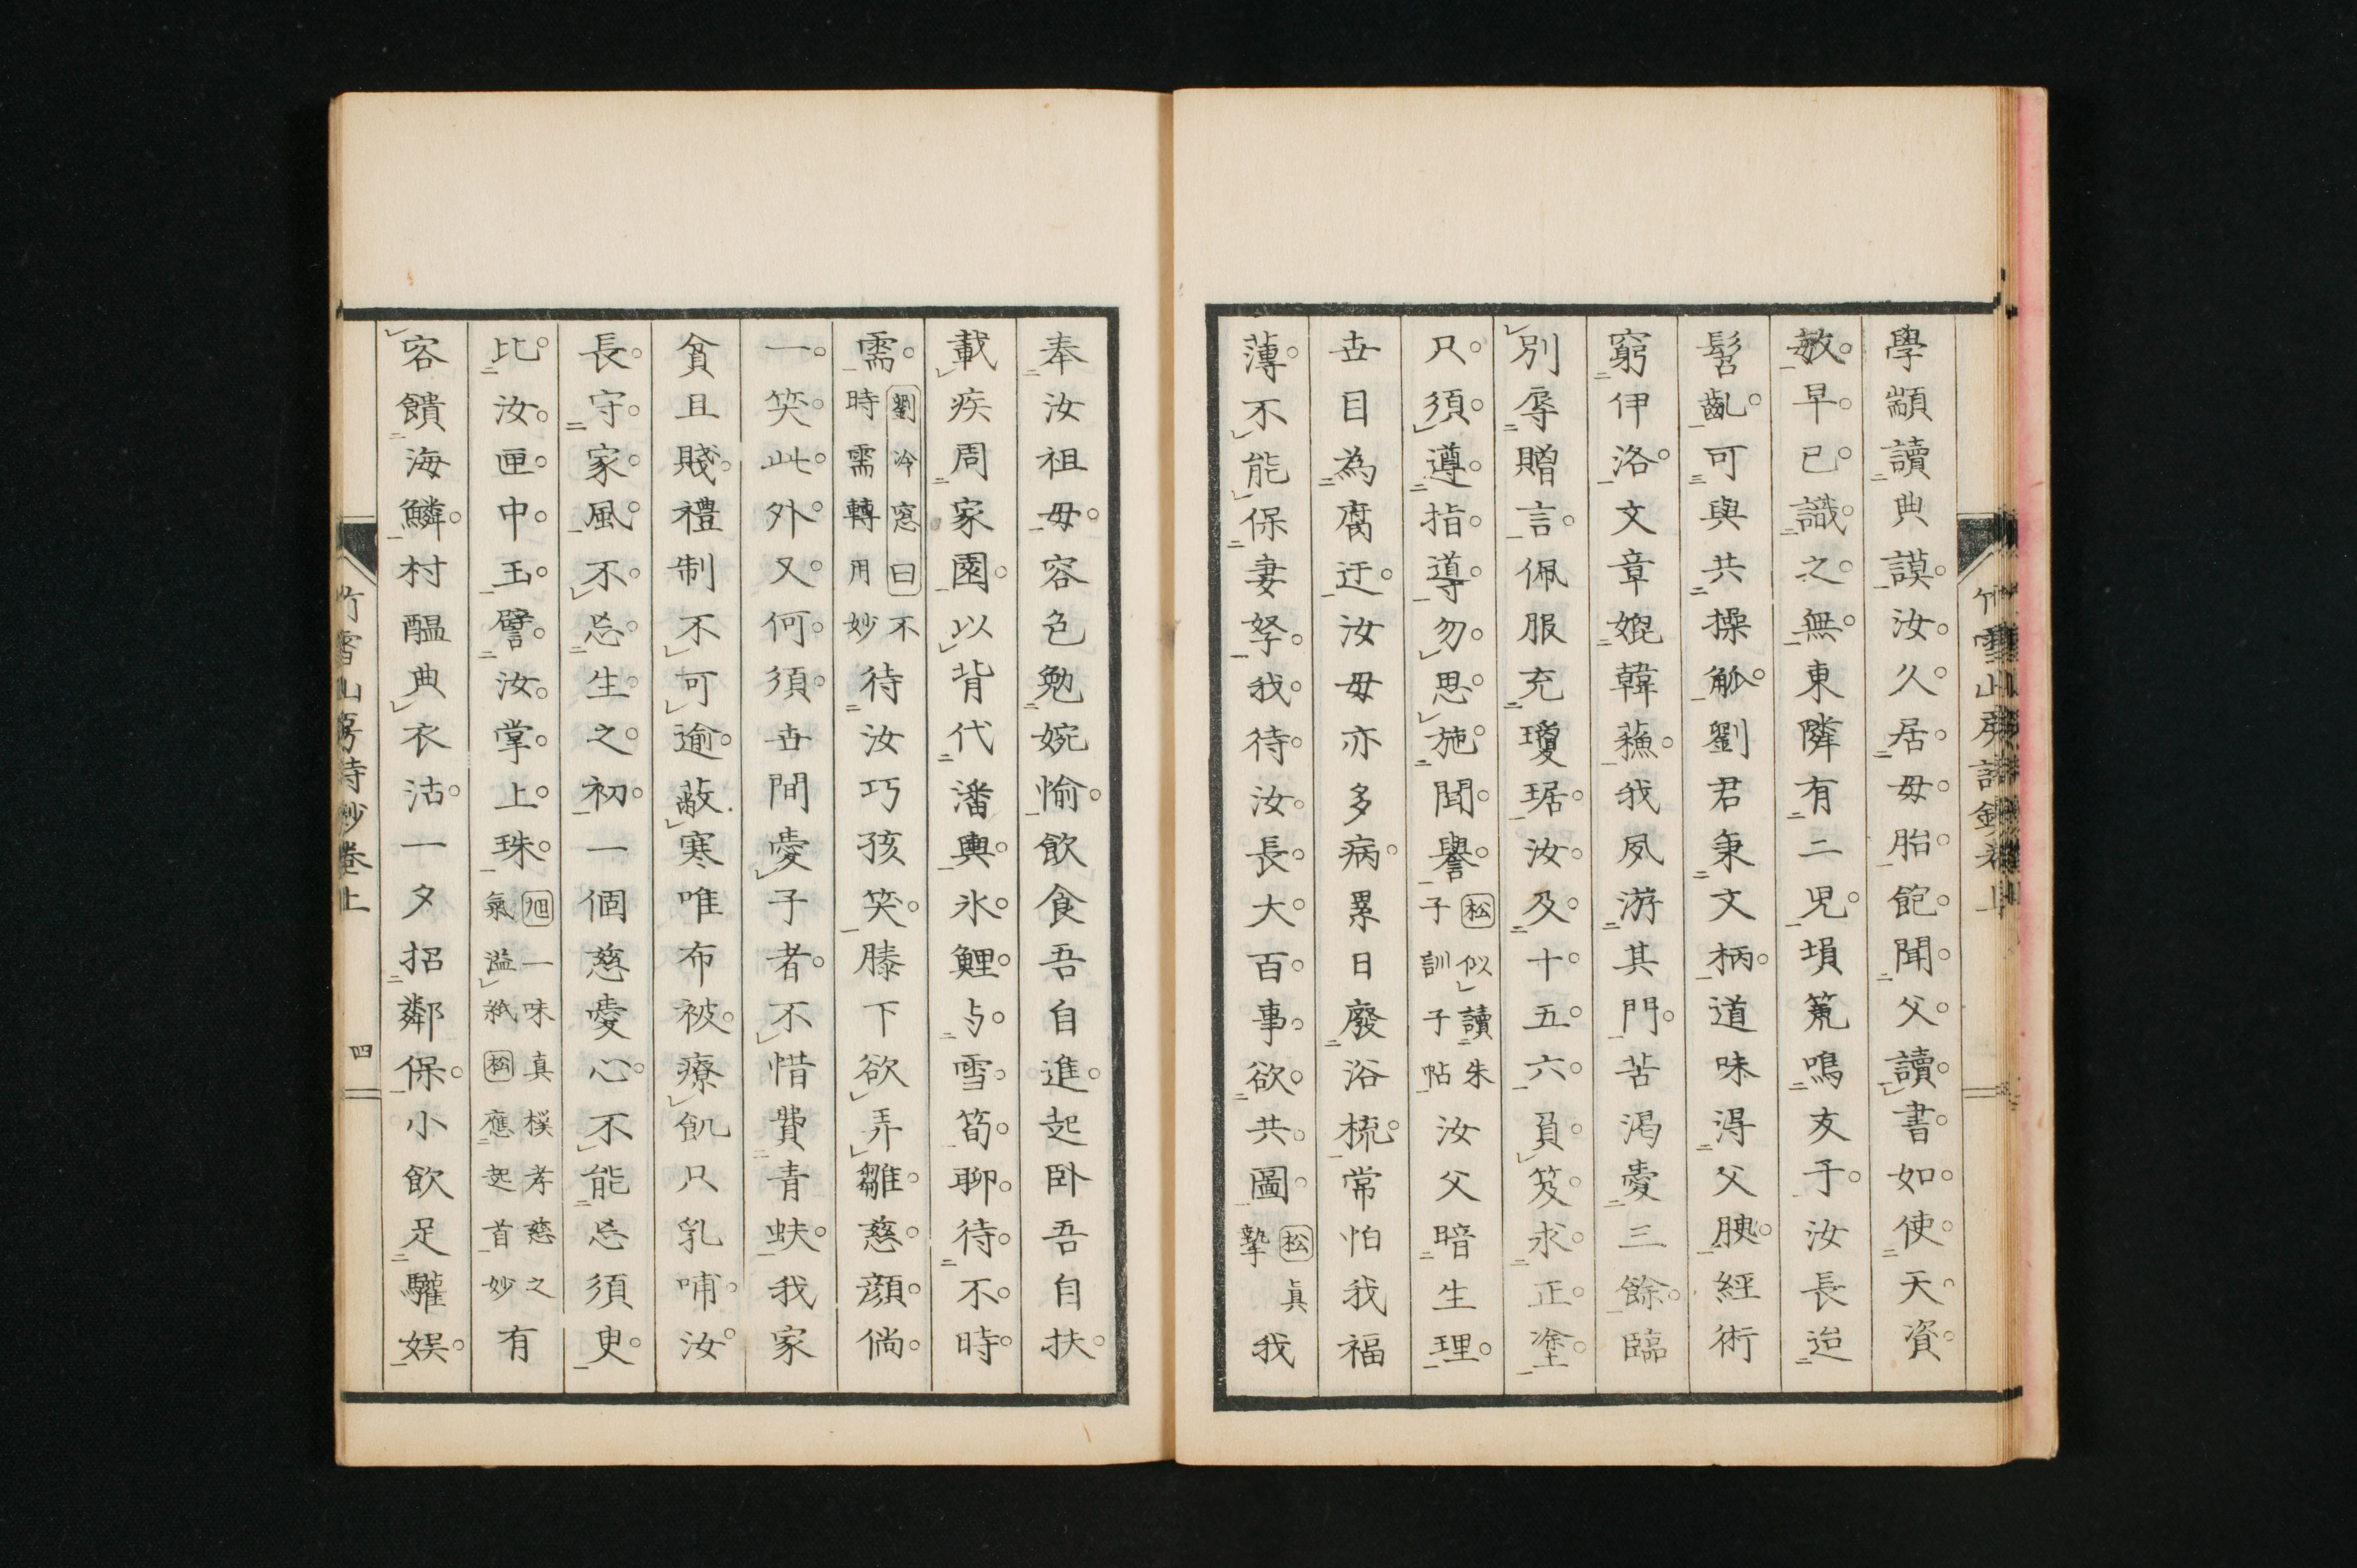 學顓讀典謨汝久居母胎飽聞父讀書如使天資
敏早已識之無東隣有二児塤篪鳴友于汝長迨
髫齓可與共操觚劉君秉文柄道味淂父腴經術
窮伊洛文章媲韓蘓我夙游其門苦渇愛三餘臨
別辱贈言佩服充瓊琚汝及十五六負笈求正塗
只須遵指導勿思施聞譽
松似讀朱
子訓子帖
汝父暗生理
世目為腐迂汝母亦多病累日廢浴梳常怕我福
薄不能保妻孥我待汝長大百事欲共圖
松真
摯
我
奉汝祖母容色勉婉愉飲食吾自進起卧吾自扶
載疾周家園以背代潘輿氷鯉与雪筍聊待不時
需
劉冷窓曰不
時需轉用妙
待汝巧孩笑膝下欲弄雛慈顔倘
一笑此外又何須世間愛子者不惜費青蚨我家
貧且賤禮制不可逾蔽寒唯布被療飢只乳哺汝
長守家風不忘生之初一個慈愛心不能忘須臾
比汝匣中玉譬汝掌上珠
一味真樸孝慈之
氣溢紙松應起首妙
有
客饋海鱗村醞典衣沽一夕招鄰保小飲足驩娯
竹雪山房詩鈔卷上
四